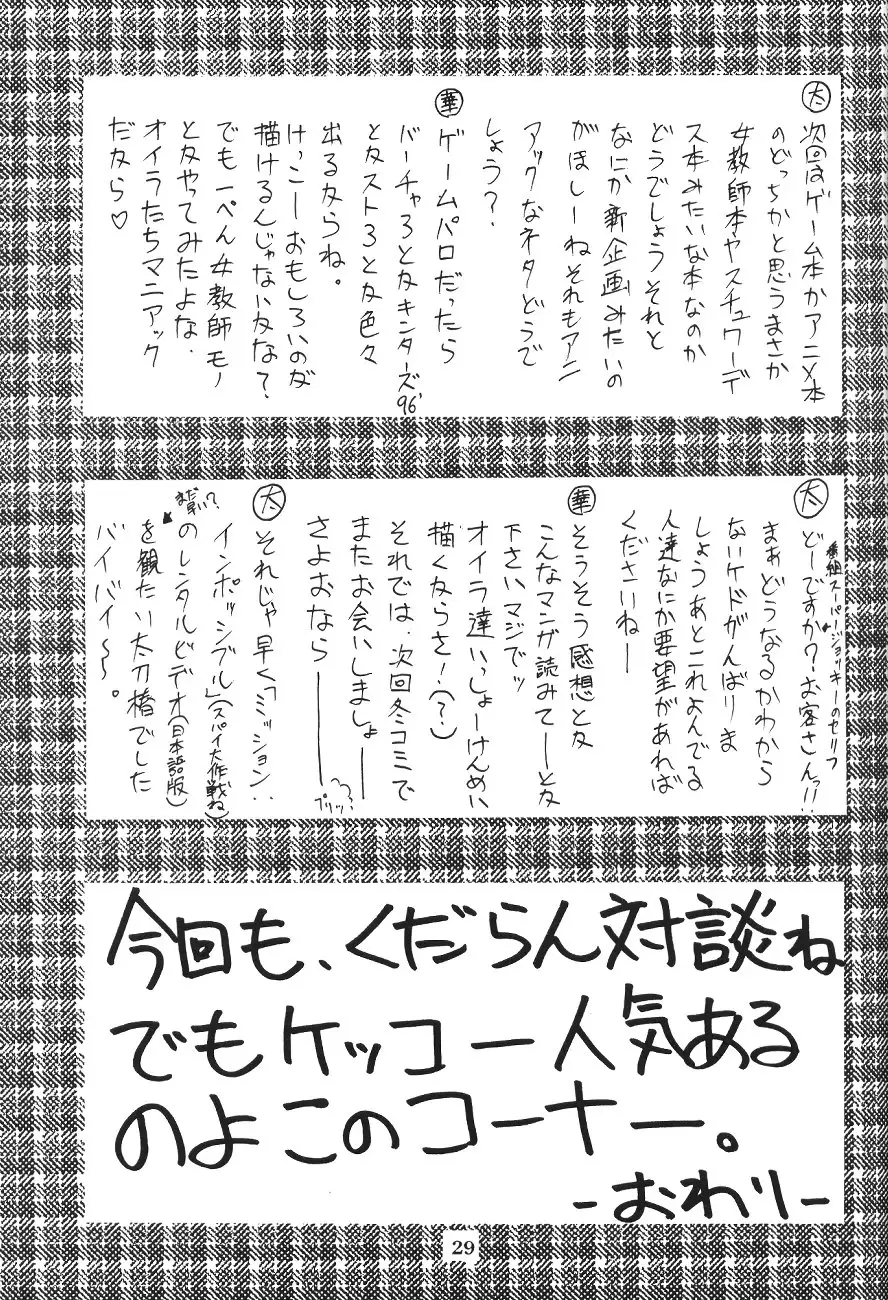 太 次回はゲーム本かアニメ本
のどっちかと思うまさか
女教師本やスチュワーデ
ス本みたいな本なのか
どうでしょうそれと
なにか新企画みたいの
がほしーねそれもアニ
アックなネタどうで
しょう?
華 ゲームパロだったら
バーチャ3とかキンターズ96'
とかスト3とか色々
出るからね。
けっこーおもしろいのが
描けるんじゃないかな?
でも一ぺん女教師モノ
とかやってみたよな.
オイラたちマニアック
だから♡
番組スーパージョッキーのセリフ
太 どーですか?お客さんっ!!
まぁどうなるかわから
ないケドがんばりま
しょうあとこれよんでる
人達なにか要望があれば
くださいねー
華 そうそう感想とか
こんなマンガ読みてーとか
下さいマジでッ
オイラ達いっしょーけんめい
描くからさ!(?)
それでは、次回冬コミで
またお会いしましょー
さよおなら―――
プリッ?
太 それじゃ早く「ミッション:
インポッシブル」(スパイ大作戦ね)
のレンタルビデオ(日本語版)
を観たい太刀椿でした
バイバイ～。
今回も、くだらん対談ね
でもケッコー人気ある
のよこのコーナー。
-おわり-
29